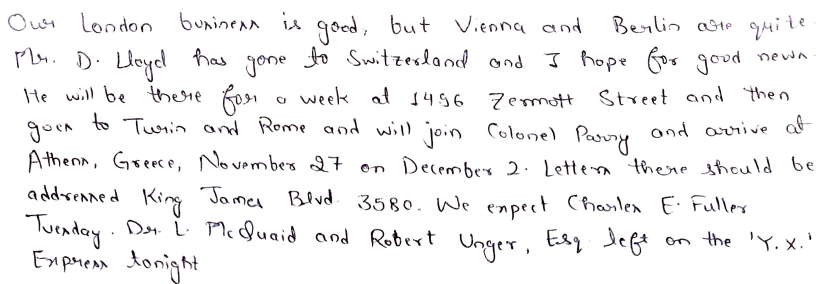 Our London business is good, but Vienna and Berlin are quite.
Mr. D. Lloyd has gone to Switzerland and I hope for good news.
He will be there for a week at 1496 Zermott Street and then
goes to Turin and Rome and will join Colonel Parry and arrive at
Athens, Greece, November 27 on December 2. Letters there should be
addressed King James Blvd. 3580. We expect Charles E. Fuller
Tuesday. Dr. L. McQuaid and Robert Unger, Esq. left on the 'Y.X.'
Express tonight